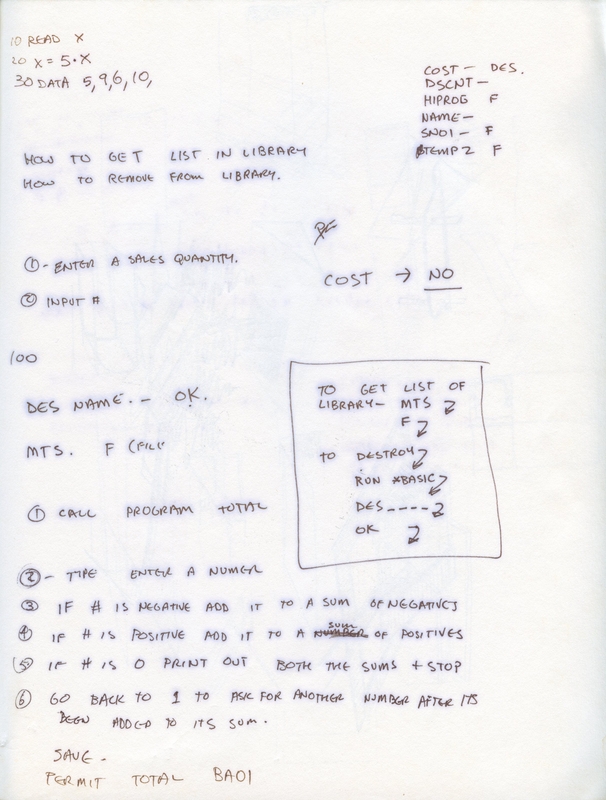 10 READ X
20 X = 5·X
30 DATA 5,9,6,10,
COST — DES.
DSCNT —
HIPROG F
NAME —
SN01 — F
TEMP2 F
HOW TO GET LIST IN LIBRARY
HOW TO REMOVE FROM LIBRARY.
① - ENTER A SALES QUANTITY.
② INPUT #
COST → NO
100
DES NAME. — OK.
MTS. F (FILE
TO GET LIST OF
LIBRARY — MTS
F
TO DESTROY
RUN *BASIC
DES ----
OK
① CALL PROGRAM TOTAL
② - TYPE ENTER A NUMER
③ IF # IS NEGATIVE ADD IT TO A SUM OF NEGATIVES
④ IF # IS POSITIVE ADD IT TO A SUM OF POSITIVES
⑤ IF # IS 0 PRINT OUT BOTH THE SUMS + STOP
⑥ GO BACK TO 1 TO ASK FOR ANOTHER NUMBER AFTER ITS
BEEN ADDED TO ITS SUM.
SAVE -
PERMIT TOTAL BA01